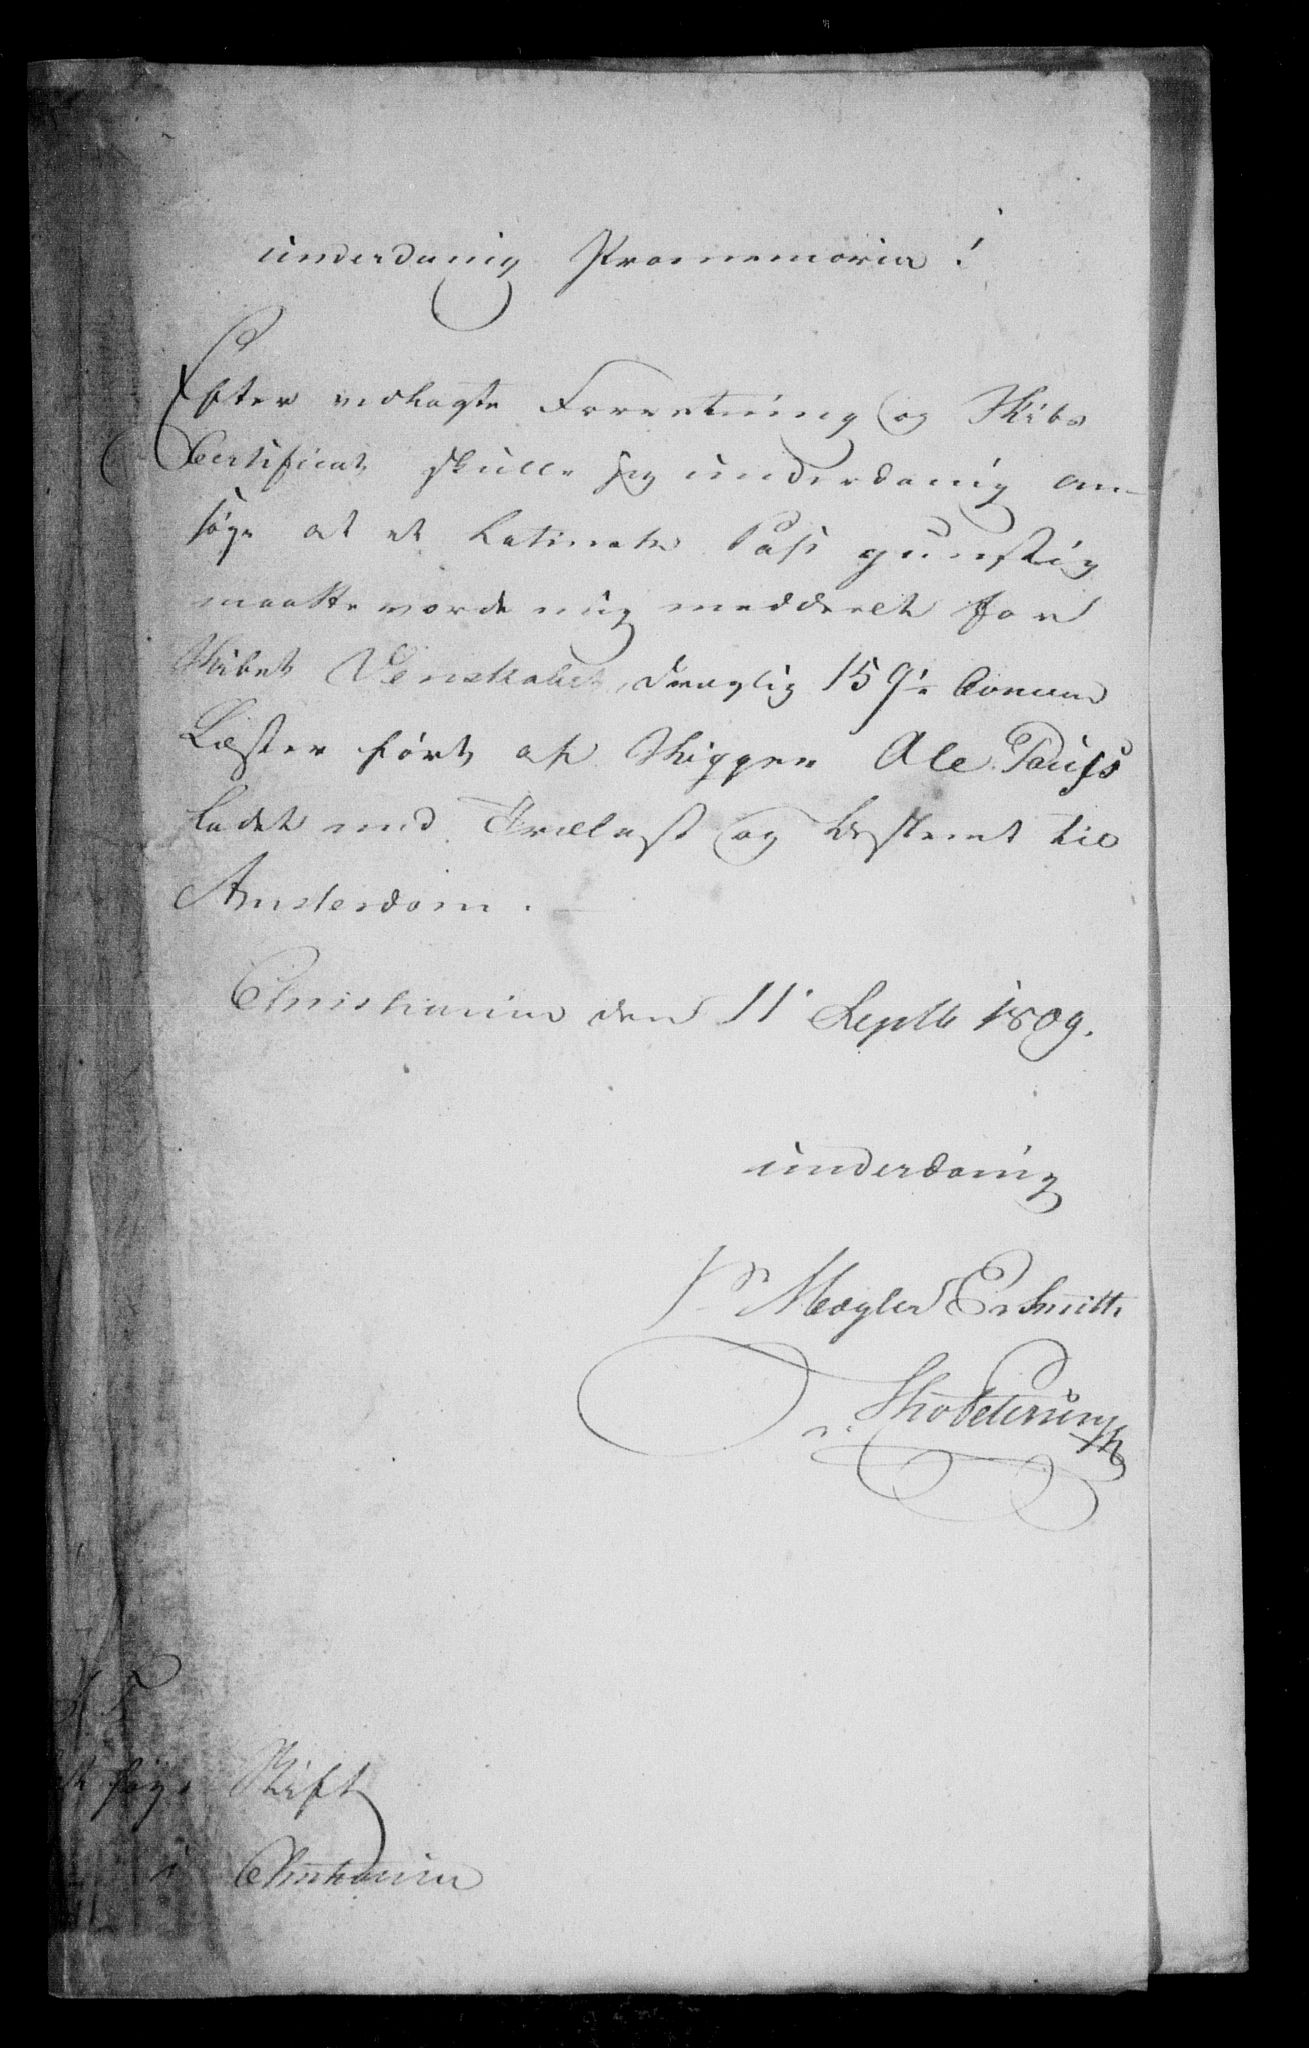 underdanig Promemoria!
Efter vedlagte Forretning og Skibs
Certificat skulle jeg underdanig an-
søge at et Latinsk Pass gunstig
maatte vorde mig meddeelt for
Skibet Venskabet, drægtig 159½ Comerce
Læster ført af Skipper Ole Pauss
ladet med Trælast og bestemt til
Amsterdam.
Christiania den 11 Septb 1809.
underdanig
pr Mægler Er Smith
Petersen
høye Stift
i Christiania